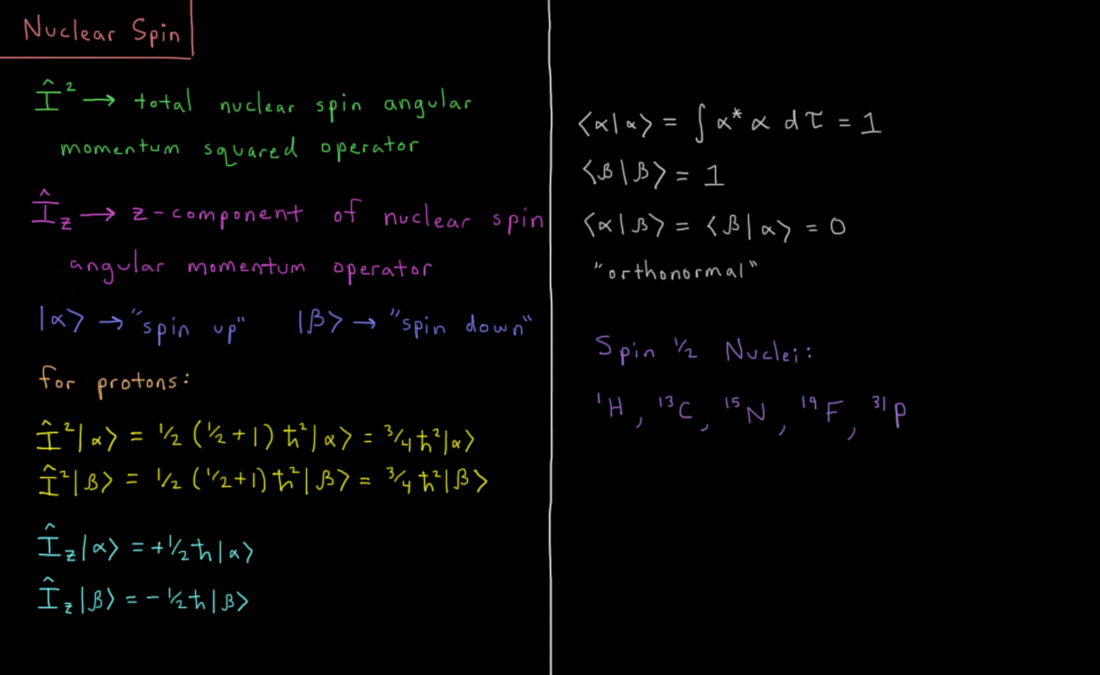 Nuclear Spin
Î² → total nuclear spin angular
momentum squared operator
Î_z → z-component of nuclear spin
angular momentum operator
|α⟩ → "spin up"   |β⟩ → "spin down"
for protons:
Î²|α⟩ = 1/2 (1/2+1) ħ²|α⟩ = 3/4 ħ²|α⟩
Î²|β⟩ = 1/2 (1/2+1) ħ²|β⟩ = 3/4 ħ²|β⟩
Î_z|α⟩ = +1/2 ħ|α⟩
Î_z|β⟩ = -1/2 ħ|β⟩
⟨α|α⟩ = ∫ α* α dτ = 1
⟨β|β⟩ = 1
⟨α|β⟩ = ⟨β|α⟩ = 0
"orthonormal"
Spin 1/2 Nuclei:
¹H, ¹³C, ¹⁵N, ¹⁹F, ³¹P